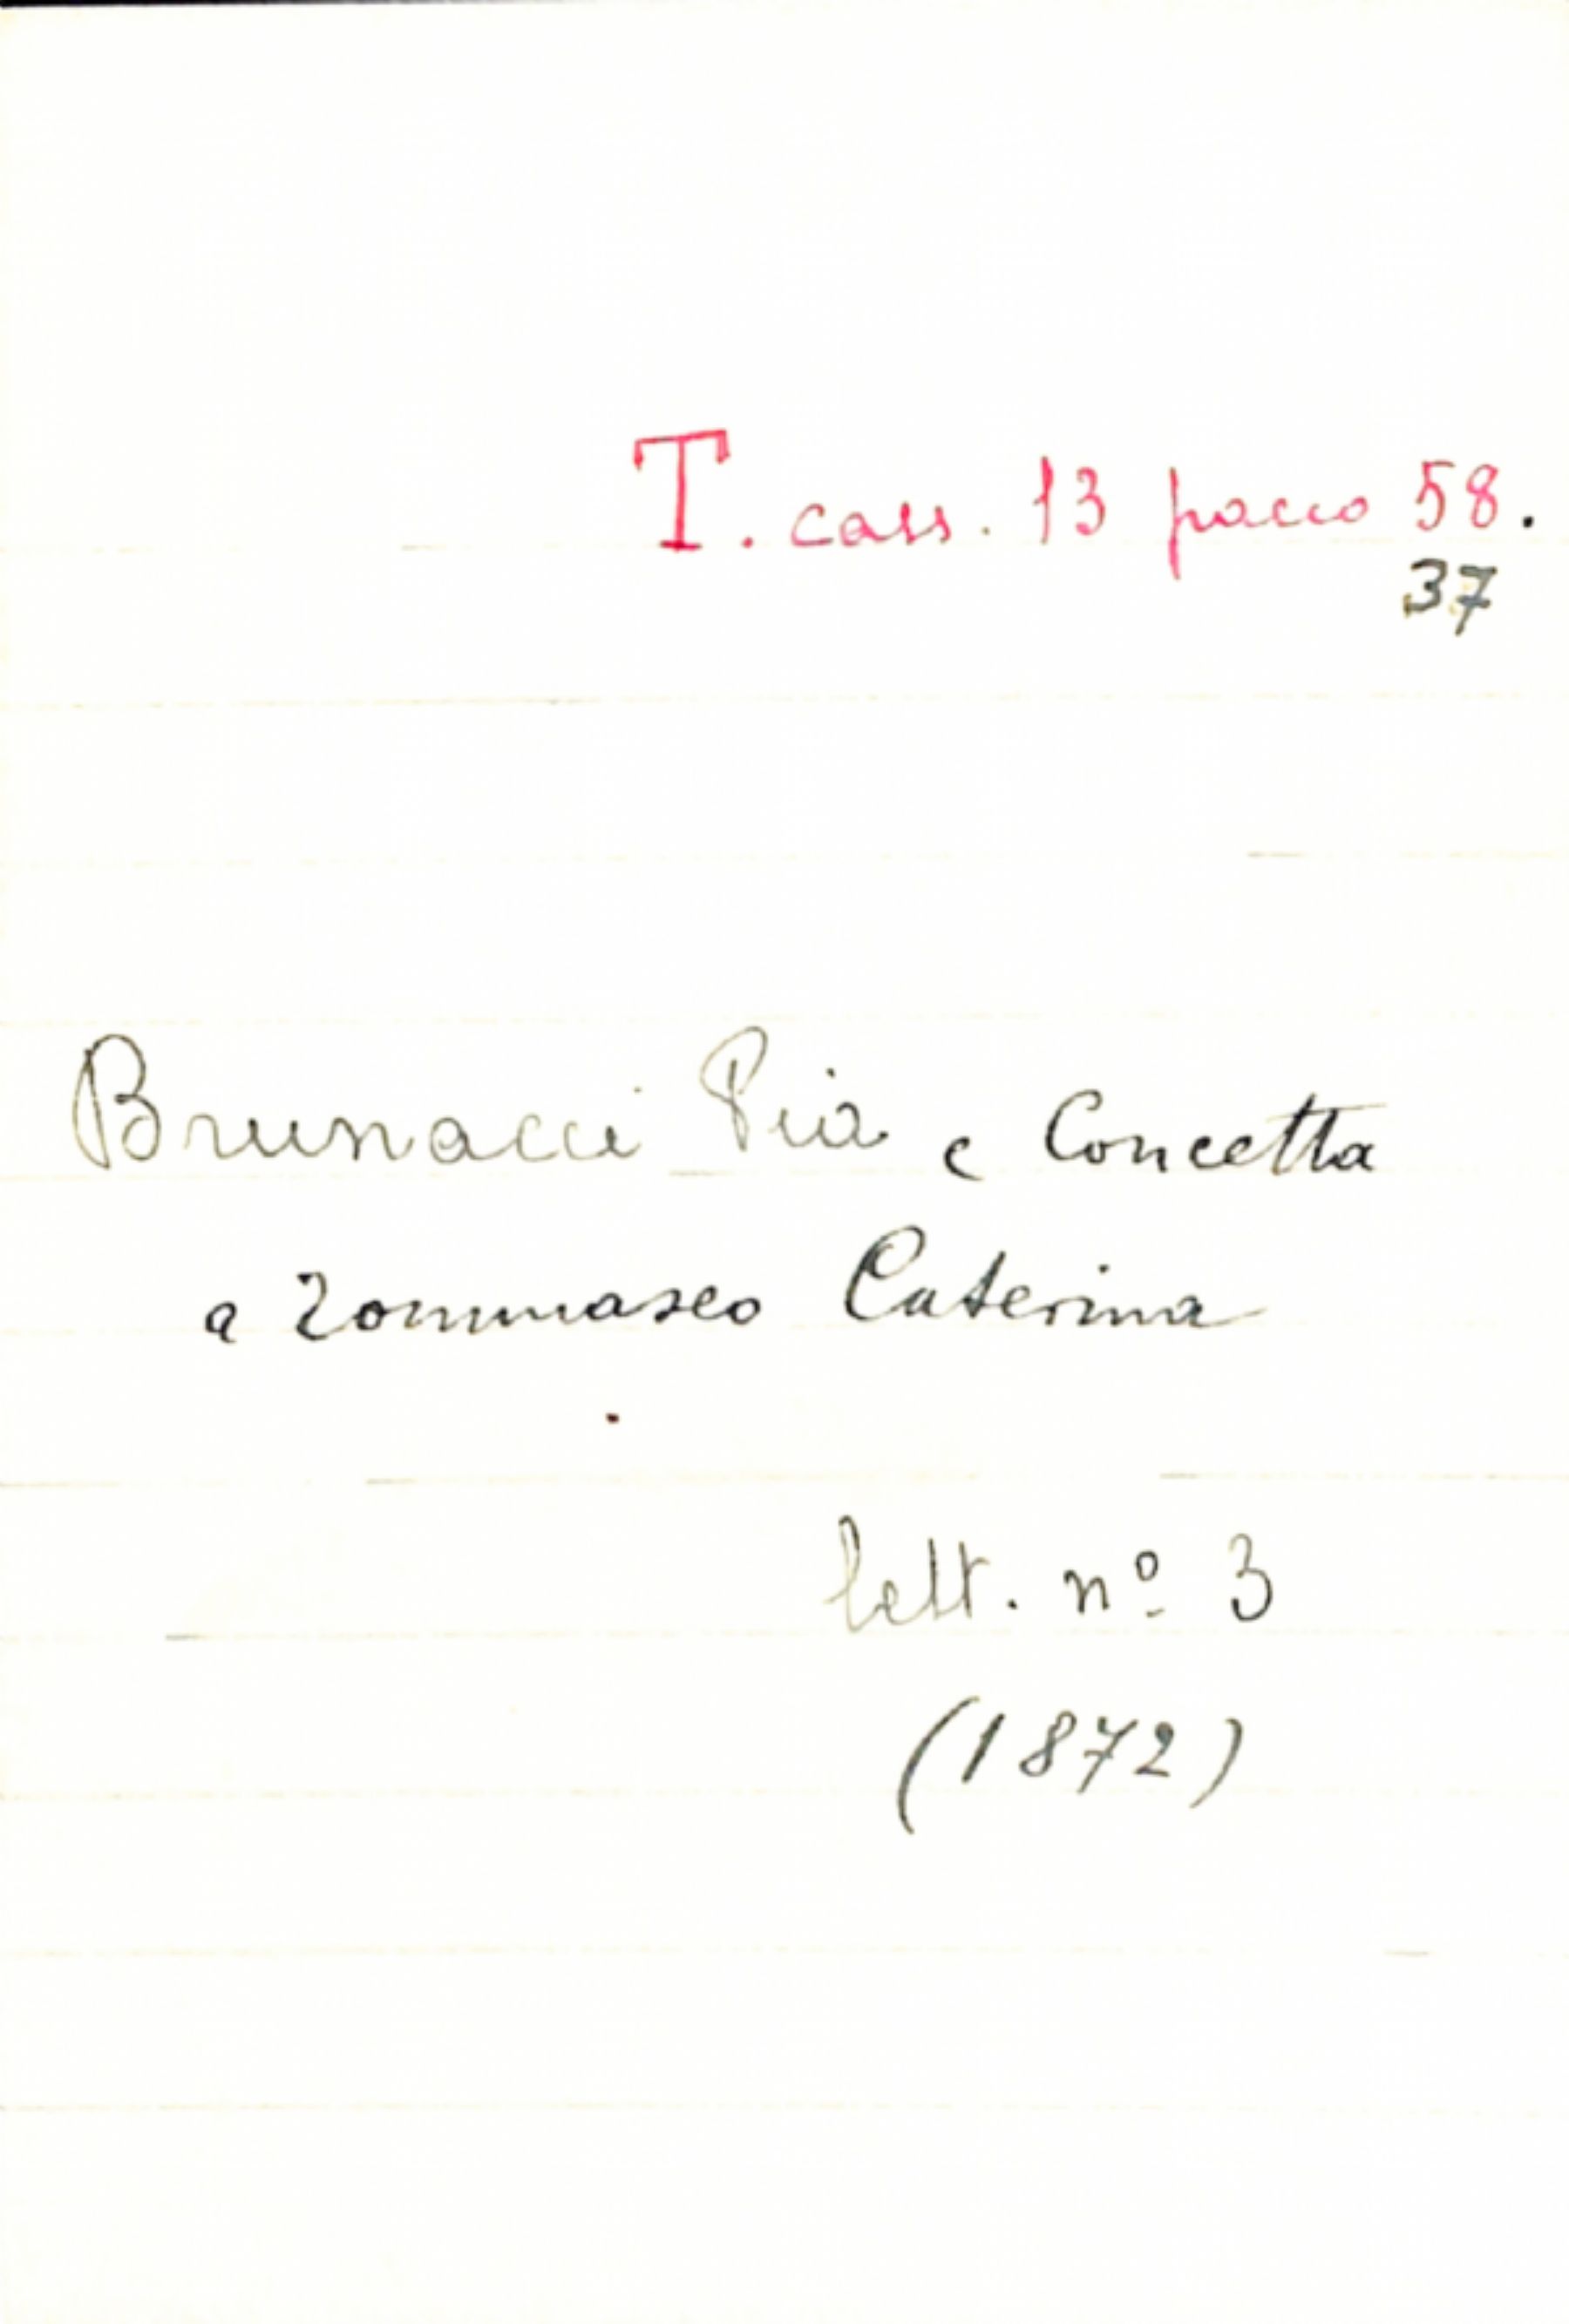 T. cass. 13 pacco 58.
37
Brunacci Pia e Concetta
a Tommaseo Caterina
lett. nº 3
(1872)